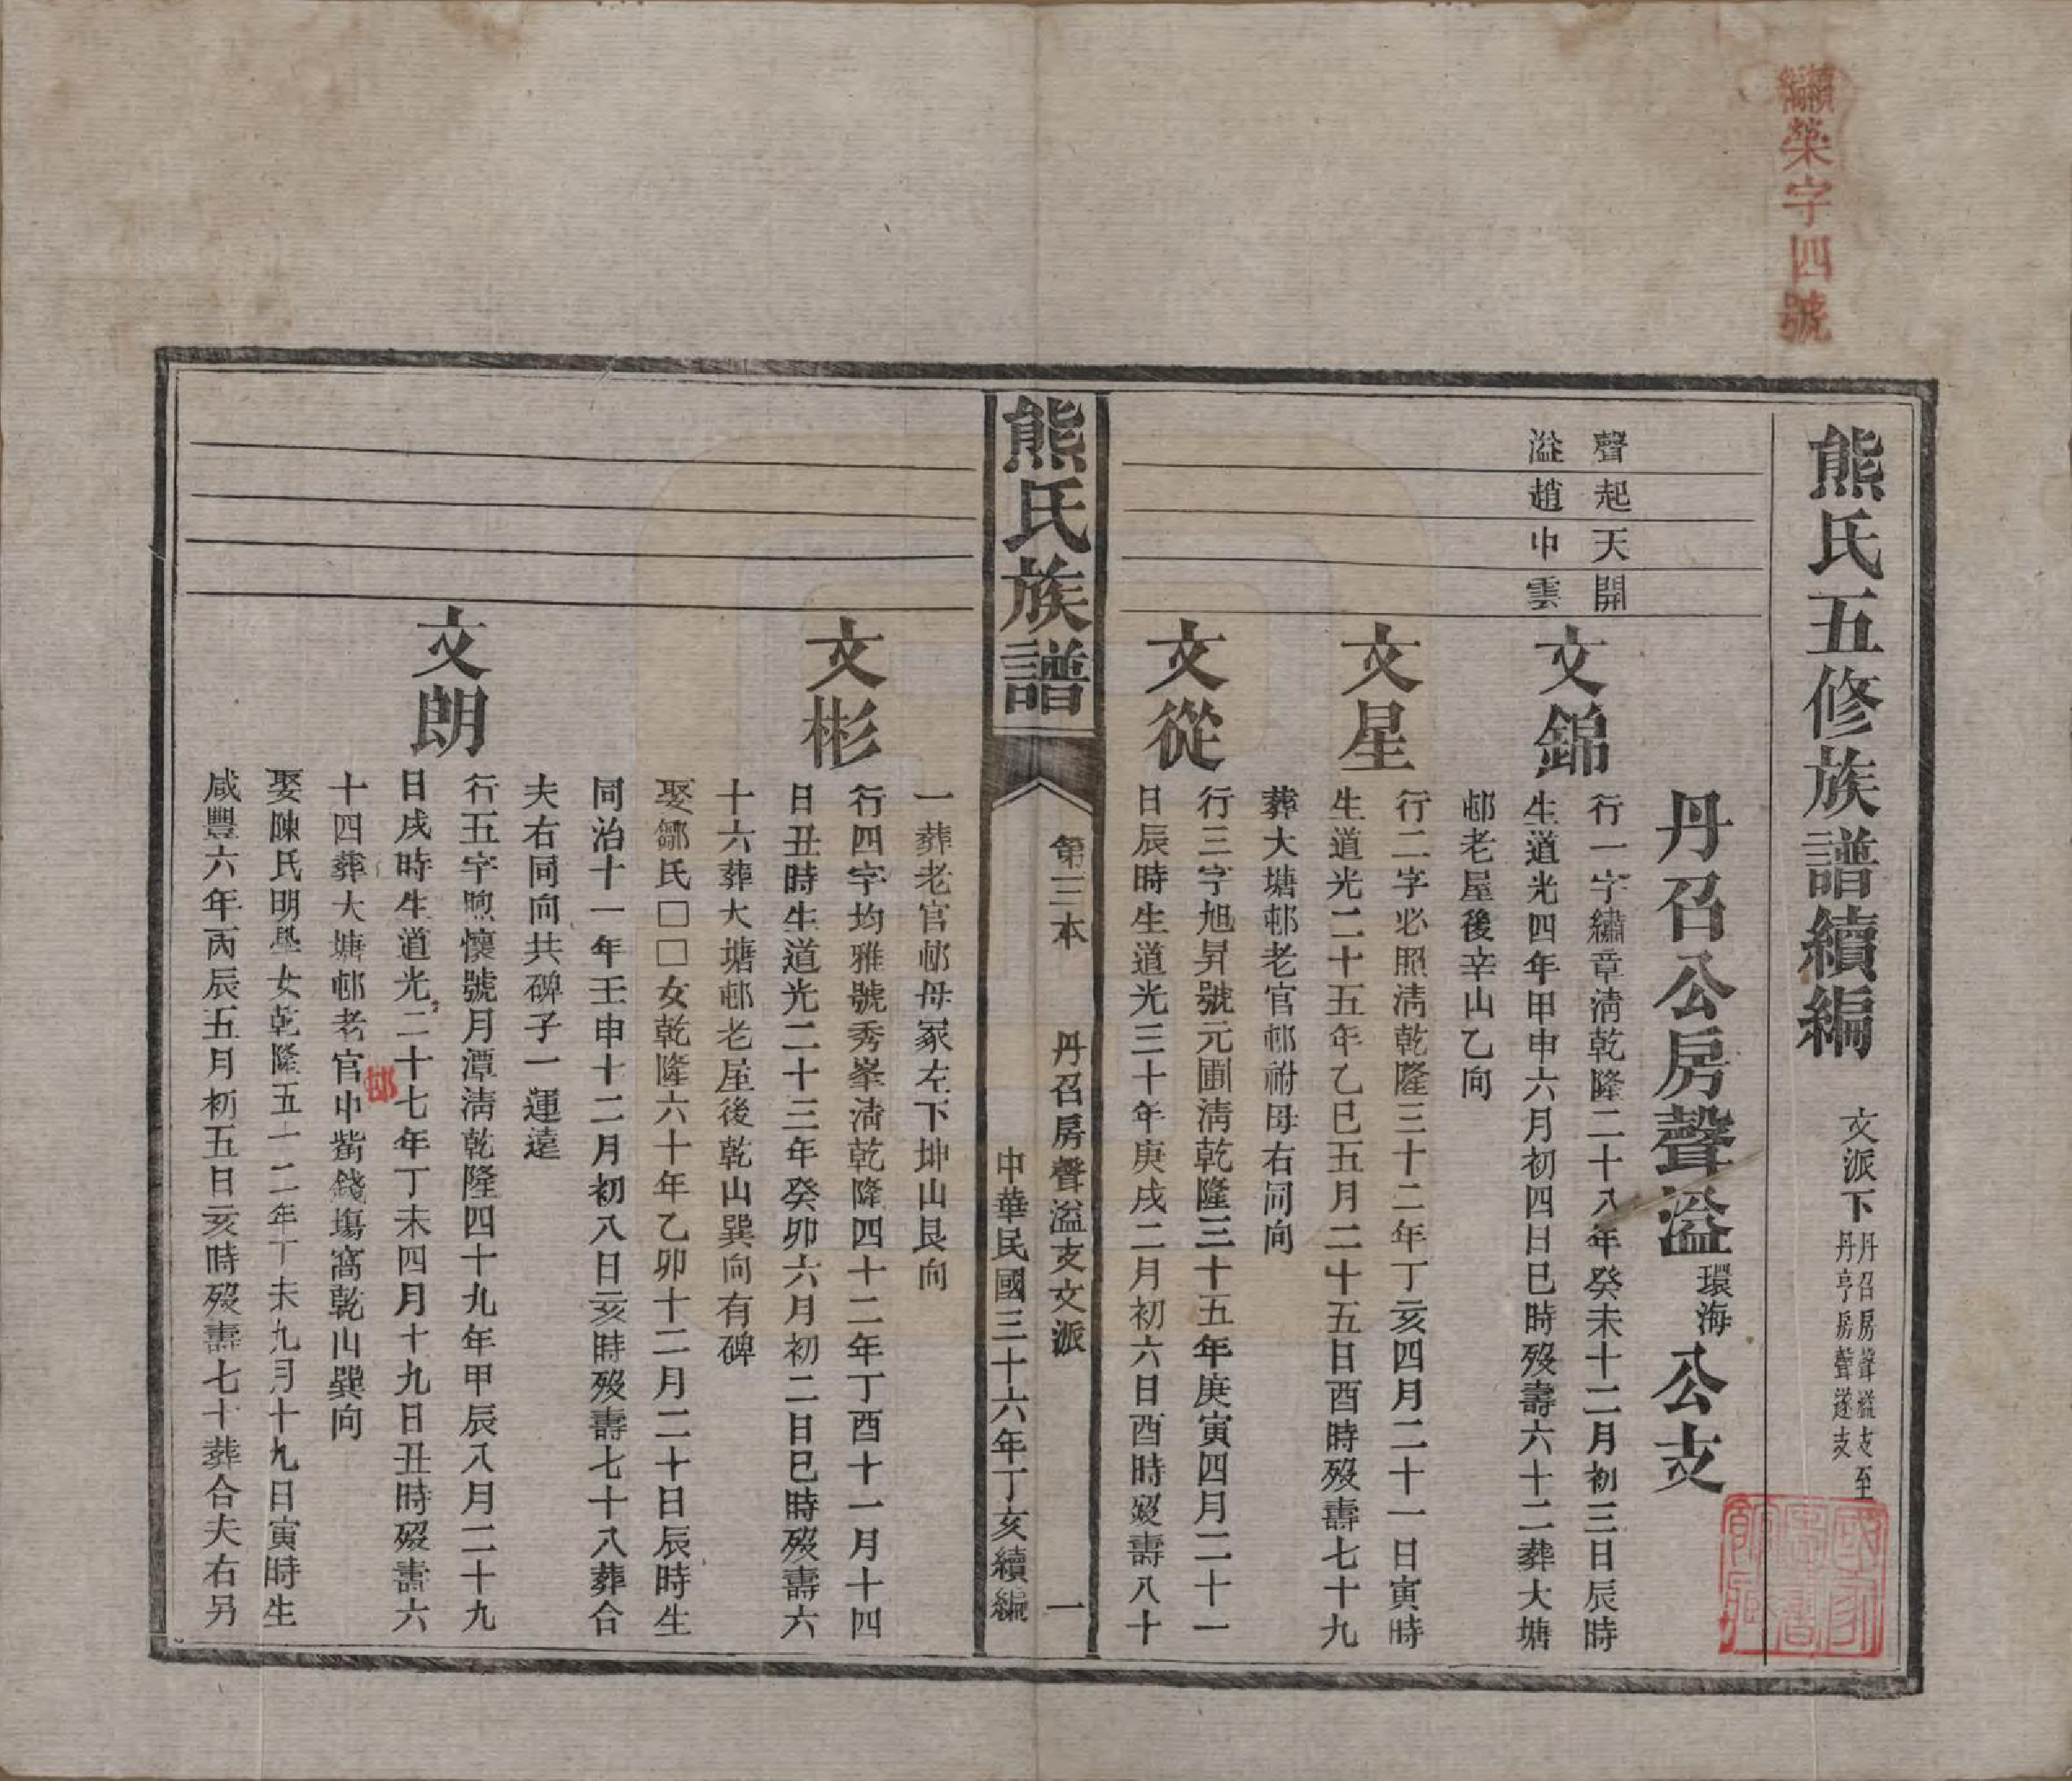 續編榮字四號
熊氏五修族譜續編
文派下
丹召房聲溢支至
丹亨房聲遂支
丹召公房聲溢環海公支
聲起天開
溢趙中雲
文錦
行一字繡章淸乾隆二十八年癸未十二月初三日辰時
生道光四年甲申六月初四日巳時歿壽六十二葬大塘
邨老屋後辛山乙向
文星
行二字必照淸乾隆三十二年丁亥四月二十一日寅時
生道光二十五年乙巳五月二十五日酉時歿壽七十九
葬大塘邨老官邨祔母右同向
文從
行三字旭昇號元圃淸乾隆三十五年庚寅四月二十一
日辰時生道光三十年庚戌二月初六日酉時歿壽八十
熊氏族譜
第三本
丹召房聲溢支文派
一
中華民國三十六年丁亥續編
一葬老官邨母冢左下坤山艮向
文彬
行四字均雅號秀峯淸乾隆四十二年丁酉十一月十四
日丑時生道光二十三年癸卯六月初二日巳時歿壽六
十六葬大塘邨老屋後乾山巽向有碑
娶鄒氏□□女乾隆六十年乙卯十二月二十日辰時生
同治十一年壬申十二月初八日亥時歿壽七十八葬合
夫右同向共碑子一運遠
文朗
行五字煦懷號月潭淸乾隆四十九年甲辰八月二十九
日戌時生道光二十七年丁未四月十九日丑時歿壽六
十四葬大塘邨老官邨中嘴錢塲窩乾山巽向
娶陳氏明學女乾隆五十二年丁未九月十九日寅時生
咸豐六年丙辰五月初五日亥時歿壽七十葬合夫右另